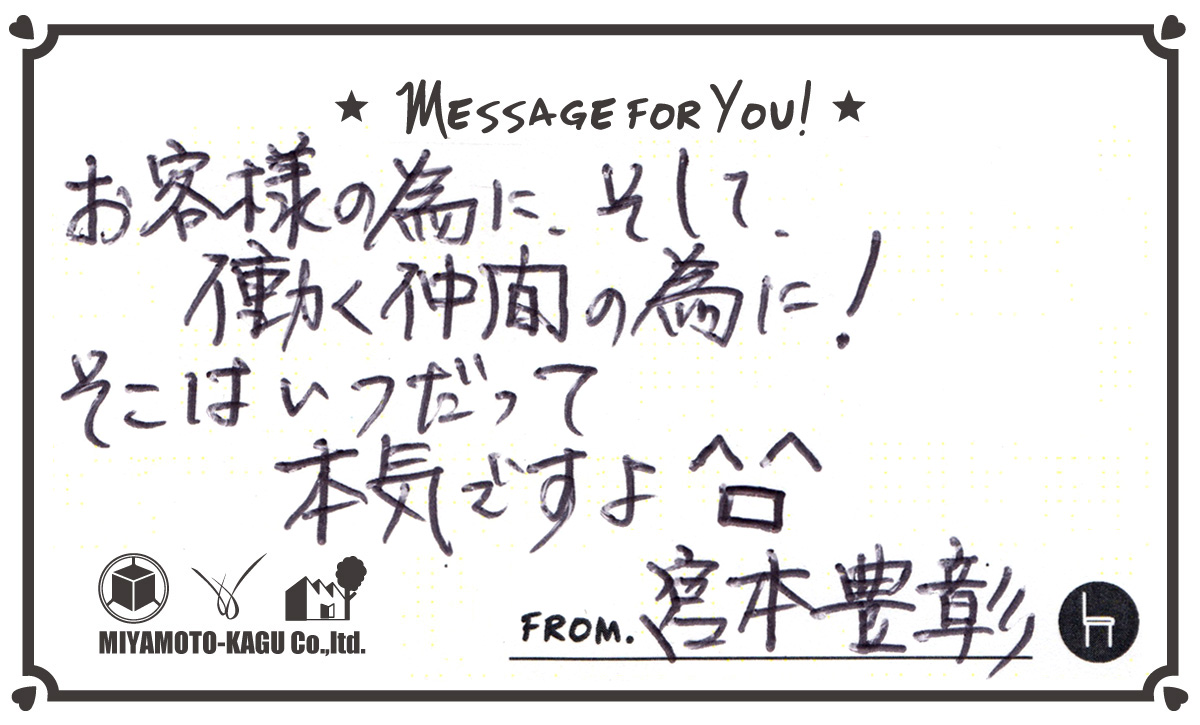 ★ MESSAGE FOR YOU! ★
お客様の為に、そして、
働く仲間の為に!
そこはいつだって
本気ですよ ^ロ^
MIYAMOTO-KAGU Co.,ltd.
FROM. 宮本豊彰